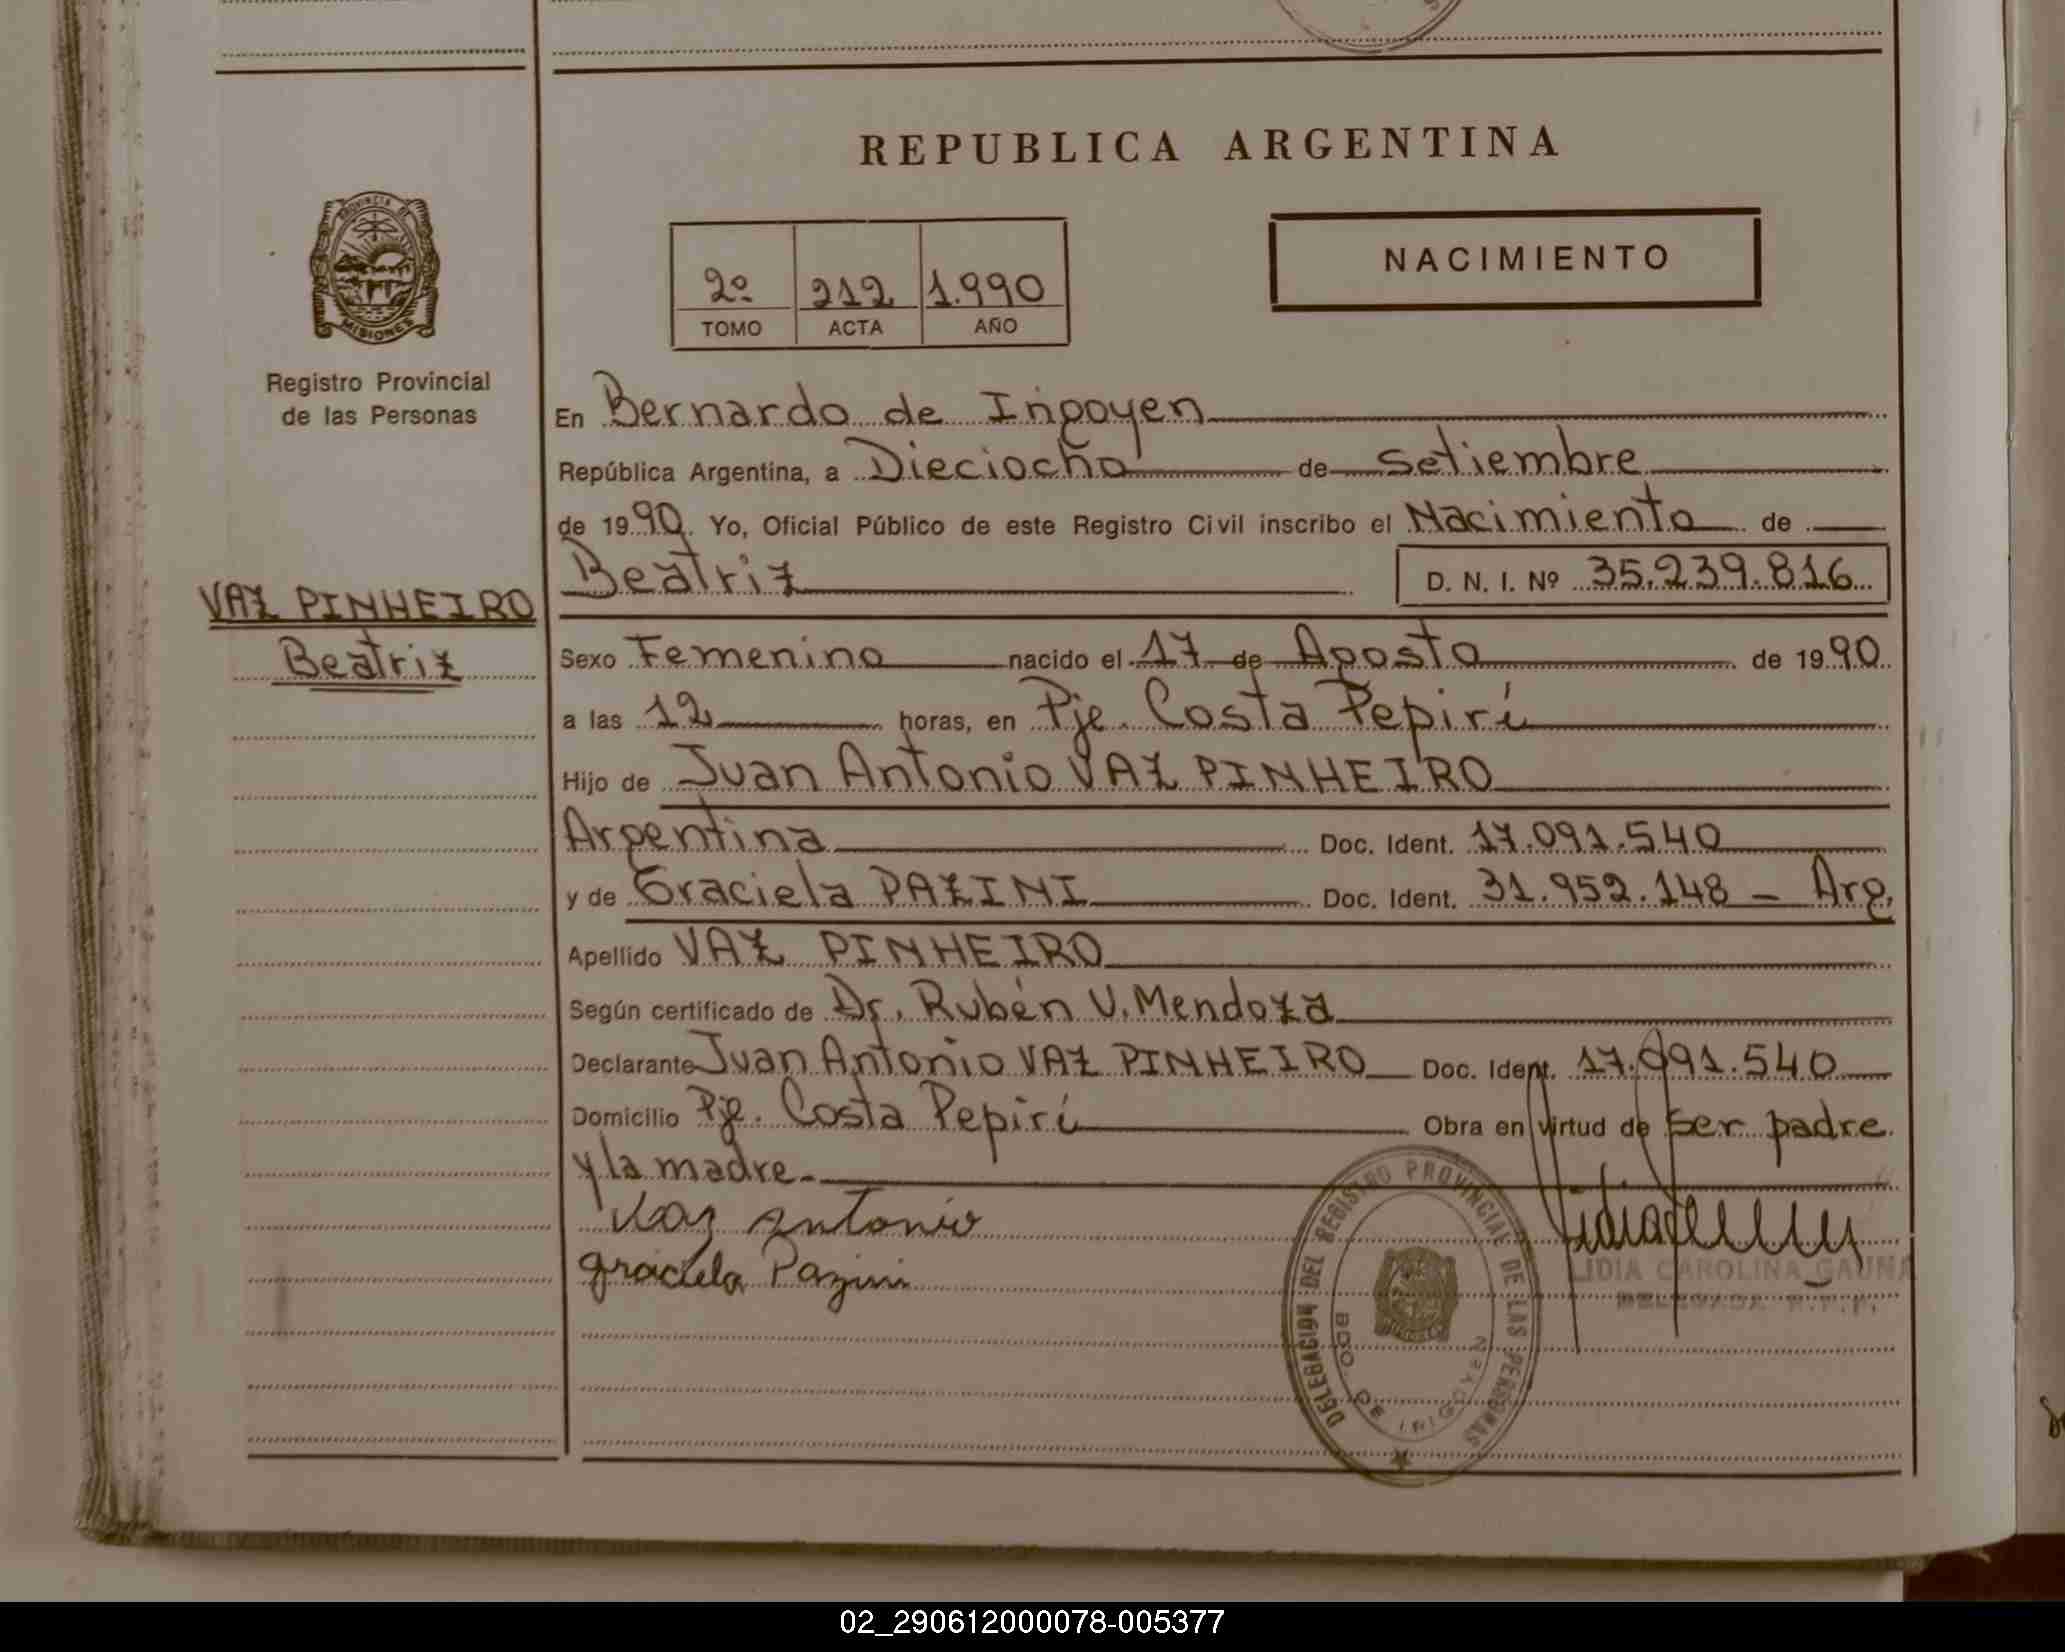 REPUBLICA ARGENTINA
PROVINCIA DE
MISIONES
Registro Provincial
de las Personas
2º 212 1.990
TOMO ACTA AÑO
NACIMIENTO
En Bernardo de Irigoyen
República Argentina, a Dieciocho de Setiembre
de 1990. Yo, Oficial Público de este Registro Civil inscribo el Nacimiento de
Beatriz D. N. I. Nº 35.239.816
VAZ PINHEIRO
Beatriz
Sexo Femenino nacido el 17 de Agosto de 1990
a las 12 horas, en Pje. Costa Pepirí
Hijo de Juan Antonio VAZ PINHEIRO
Argentina Doc. Ident. 17.091.540
y de Graciela PAZINI Doc. Ident. 31.952.148 - Arg.
Apellido VAZ PINHEIRO
Según certificado de Dr. Rubén V. Mendoza
Declarante Juan Antonio VAZ PINHEIRO Doc. Ident. 17.091.540
Domicilio Pje. Costa Pepirí Obra en virtud de ser padre
y la madre.
Vaz Antonio
graciela Pazini
DELEGACION DEL REGISTRO PROVINCIAL DE LAS PERSONAS
BDO. DE IRIGOYEN
LIDIA CAROLINA GAUNA
DELEGADA R.P.P.
02_290612000078-005377